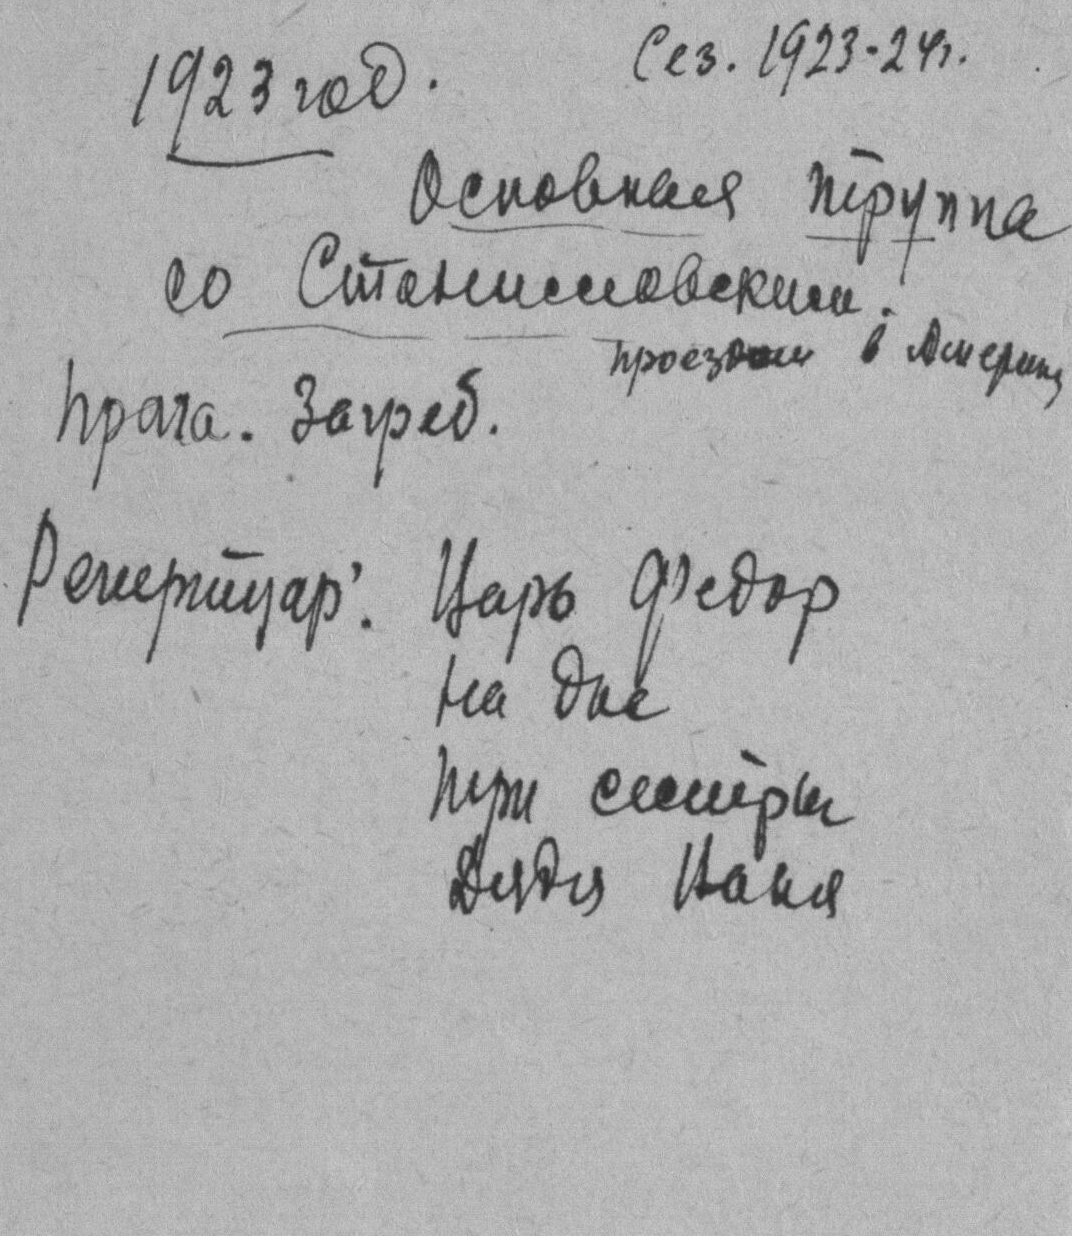 1923 год. Сез. 1923-24г.
Основная труппа
со Станиславским.
проездом в Америку
Прага. Загреб.
Репертуар: Царь Федор
На дне
Три сестры
Дядя Ваня